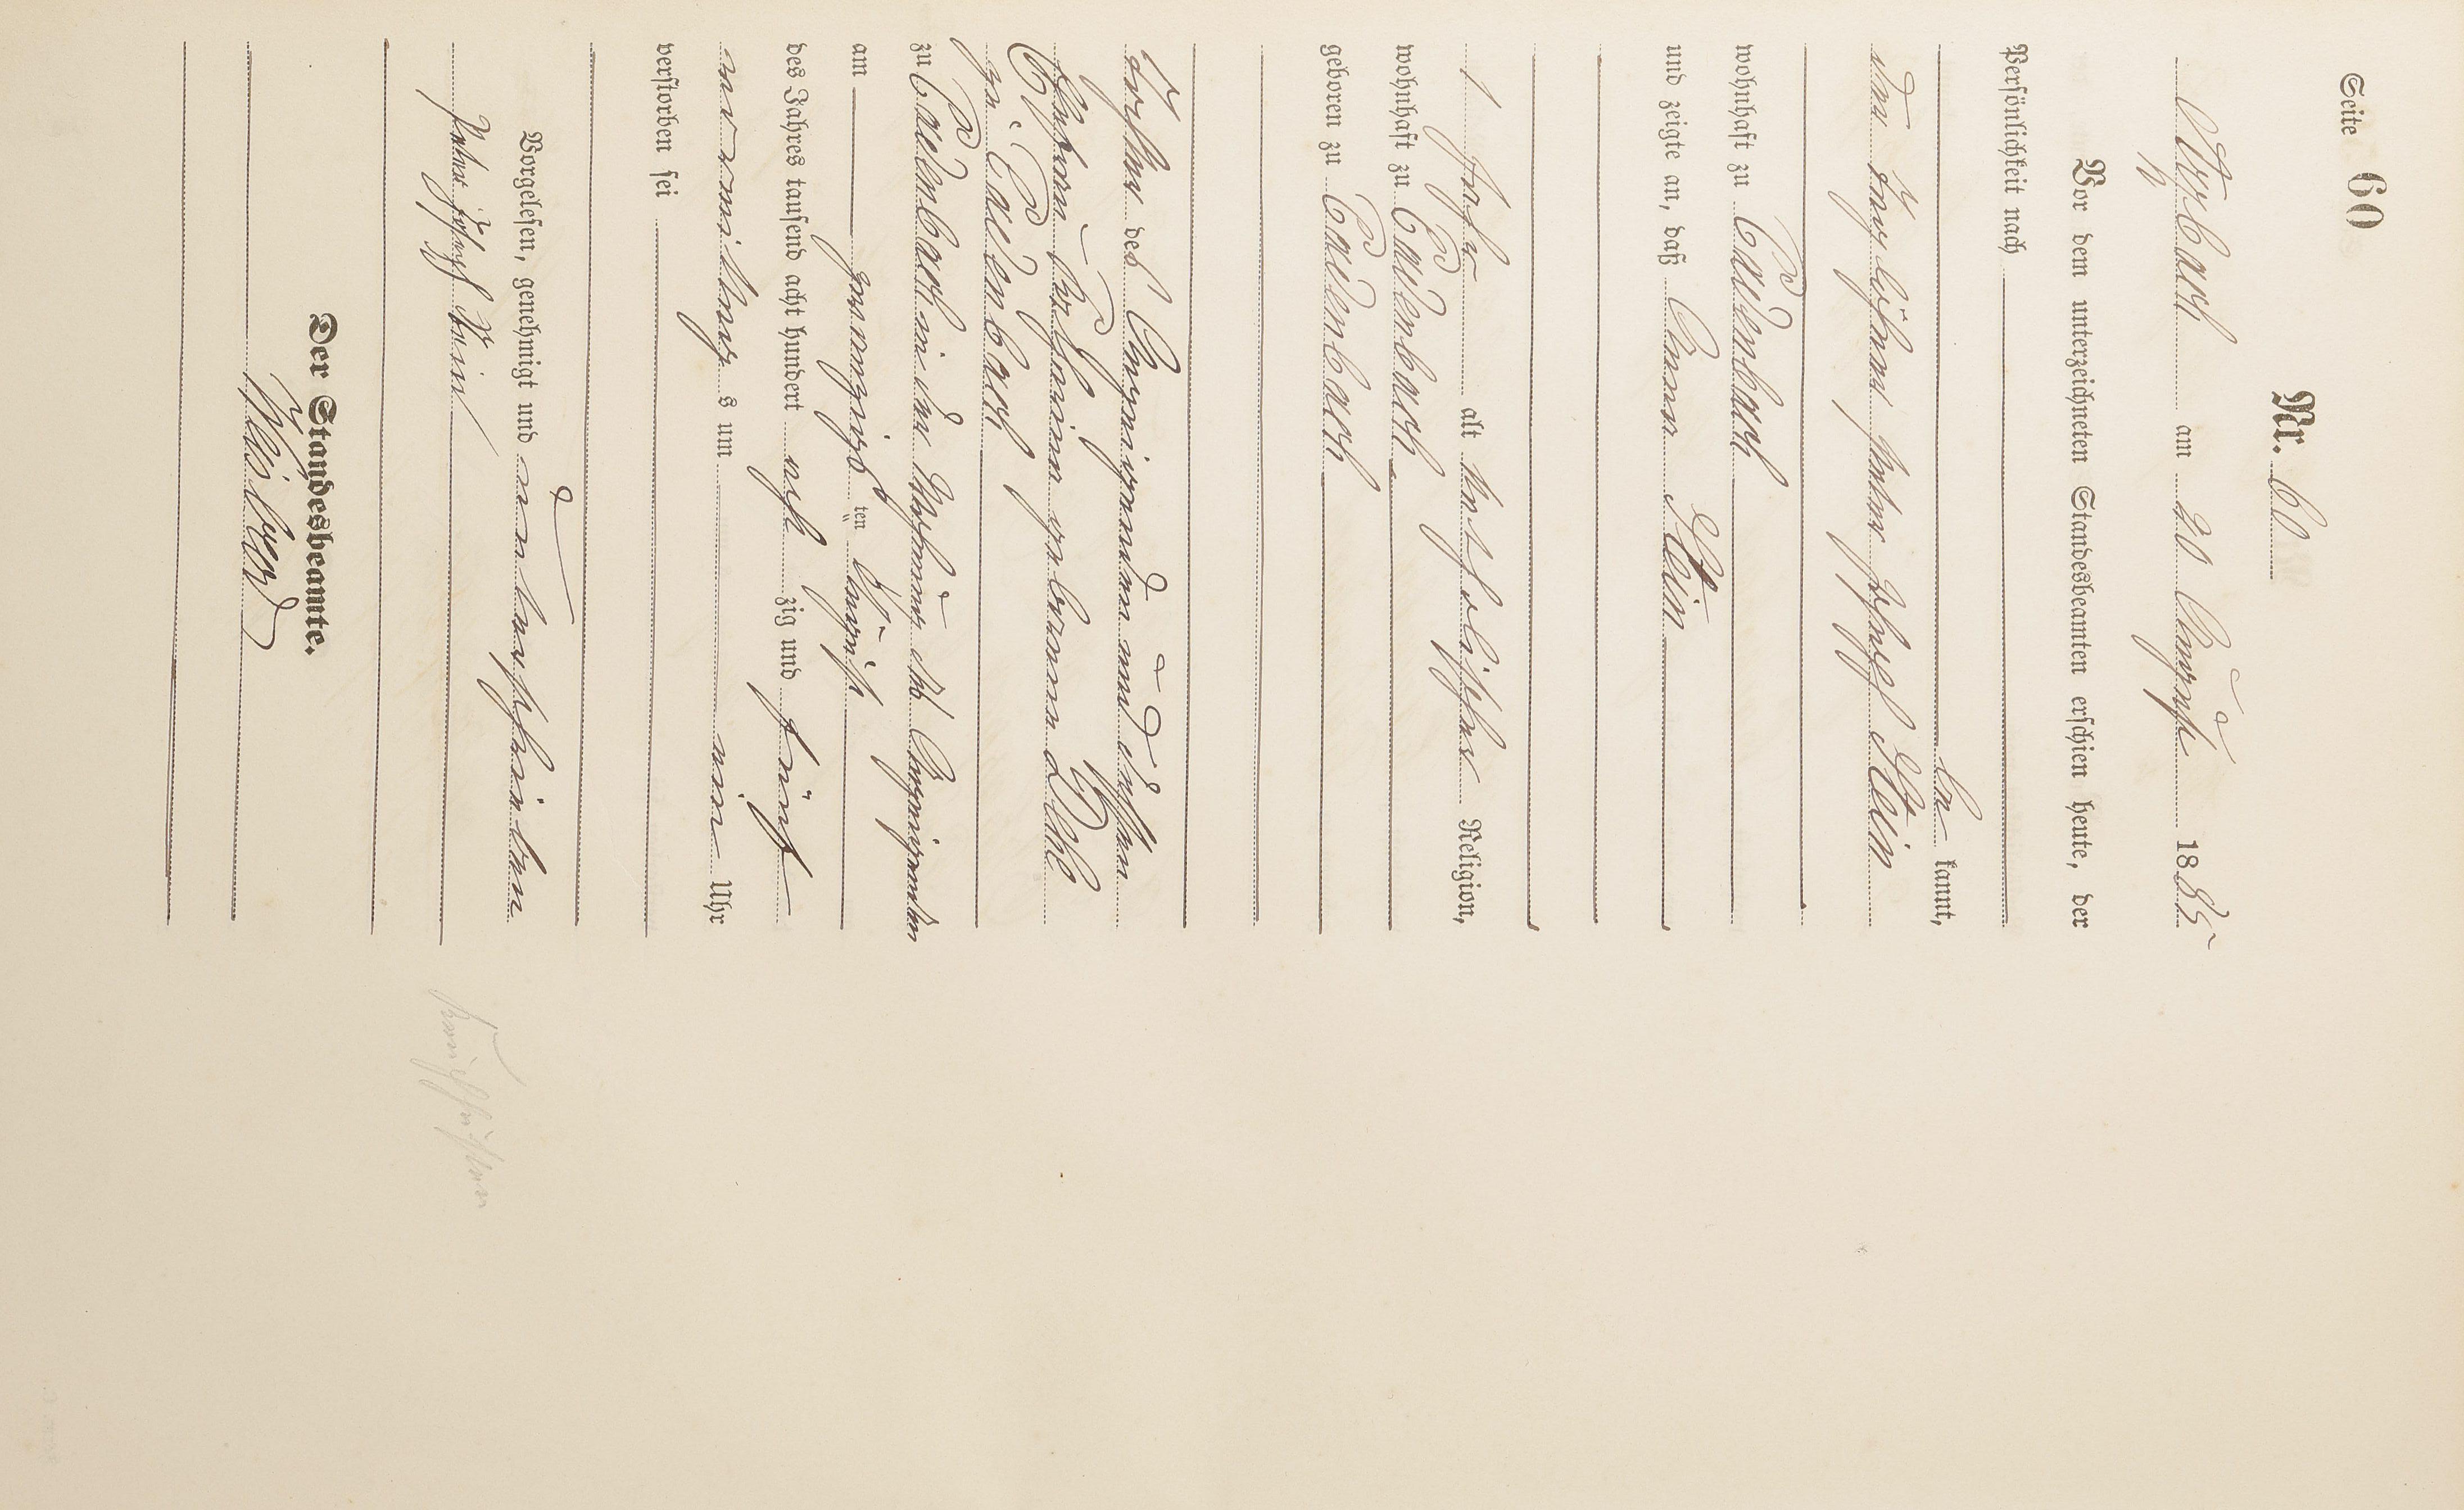 Seite 60
Nr. 60
Otzbach am 20 August 1885
Vor dem unterzeichneten Standesbeamten erschien heute, der
Persönlichkeit nach
be kannt,
der Tagelöhner Peter Joseph Stein
wohnhaft zu Laudenbach
und zeigte an, daß Anna Stein
1 Jahr alt katholischer Religion,
wohnhaft zu Laudenbach
geboren zu Laudenbach
Tochter des Anzeigenden und dessen
Ehefrau Katharina geborenen Dehl
zu Laudenbach
zu Laudenbach in der Wohnung des Anzeigenden
am zwanzigsten August
des Jahres tausend acht hundert acht zig und fünf
Vormittag s um ein Uhr
verstorben sei
Vorgelesen, genehmigt und unterschrieben
Peter Joseph Stein
Der Standesbeamte.